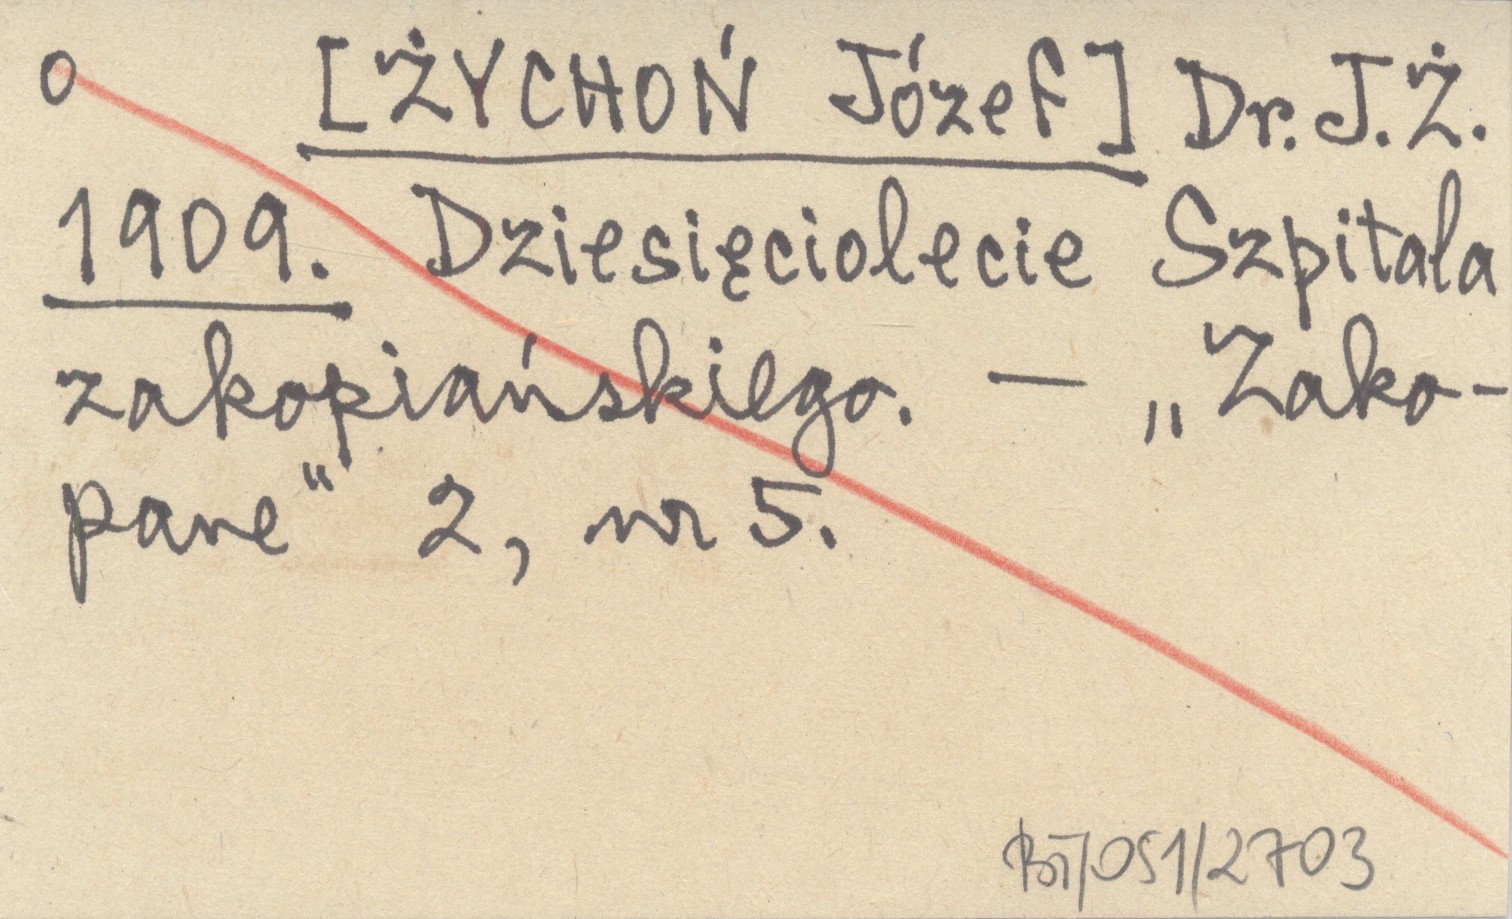 o [ŻYCHOŃ Józef] Dr. J. Ż.
1909. Dziesięciolecie Szpitala
zakopiańskiego. — „Zako-
pane“ 2, nr 5.
BT/051/2703